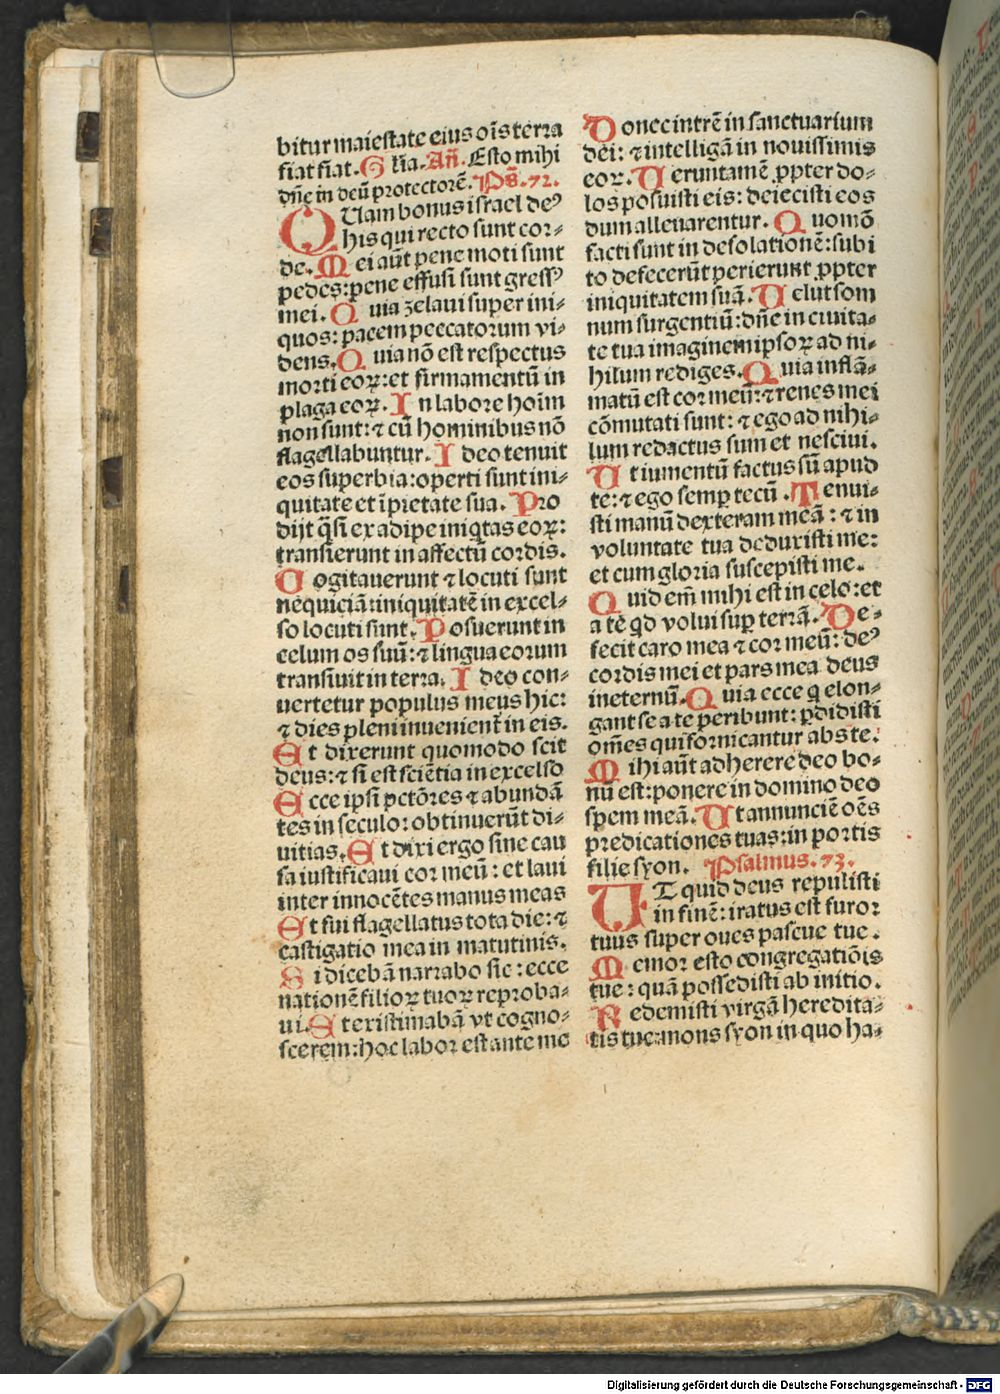 bitur maiestate eius oīs terra
fiat fiat. G lꝛia. Añ. Esto mihi
dn̄e in deū protectorē. Ps̄. 72.
QUam bonus israel deꝰ
his qui recto sunt cor⸗
de. M ei aūt pene moti sunt
pedes: pene effusi sunt gressꝰ
mei. Q uia zelaui super ini⸗
quos: pacem peccatorum vi⸗
dens. Q uia nō est respectus
morti eoꝝ: et firmamentū in
plaga eoꝝ. I n labore hoīm
non sunt: ⁊ cū hominibus nō
flagellabuntur. I deo tenuit
eos superbia: operti sunt ini⸗
quitate et īpietate sua. Pro
dijt q̄si ex adipe iniq̇tas eoꝝ:
transierunt in affectū cordis.
C ogitauerunt ⁊ locuti sunt
nequiciā: iniquitatē in excel⸗
so locuti sunt. P osuerunt in
celum os suū: ⁊ lingua eorum
transiuit in terra. I deo con⸗
uertetur populus meus hic:
⁊ dies pleni inuenient̄ in eis.
E t dixerunt quomodo scit
deus: ⁊ si est sciētia in excelso
E cce ipsi pctōres ⁊ abundā
tes in seculo: obtinuerūt di⸗
uitias. E t dixi ergo sine cau
sa iustificaui cor meū: et laui
inter innocētes manus meas
E t fui flagellatus tota die: ⁊
castigatio mea in matutinis.
S i dicebā narrabo sic: ecce
nationē filioꝝ tuoꝝ reproba⸗
ui. E texistimabā vt cogno⸗
scerem: hoc labor est ante me
D onec intrē in sanctuarium
dei: ⁊ intelligā in nouissimis
eoꝝ. U eruntamē ꝓpter do⸗
los posuisti eis: deiecisti eos
dum alleuarentur. Q uomō
facti sunt in desolationē: subi
to defecerūt perierunt ꝓpter
iniquitatem suā. U elut som
num surgentiū: dn̄e in ciuita⸗
te tua imaginem ipsoꝝ ad ni⸗
hilum rediges. Q uia inflā⸗
matū est cor meū: ⁊ renes mei
cōmutati sunt: ⁊ ego ad nihi⸗
lum redactus sum et nesciui.
U t iumentū factus sū apud
te: ⁊ ego semp̱ tecū. T enui⸗
sti manū dexteram meā: ⁊ in
voluntate tua deduxisti me:
et cum gloria suscepisti me.
Q uid em̄ mihi est in celo: et
a te qd̄ volui sup̱ terrā. D e⸗
fecit caro mea ⁊ cor meū: deꝰ
cordis mei et pars mea deus
ineternū. Q uia ecce q̇ elon⸗
gant se a te peribunt: ꝑdidisti
om̄es qui fornicantur abs te.
M ihi aūt adherere deo bo⸗
nū est: ponere in domino deo
spem meā. U t annunciē oēs
predicationes tuas: in portis
filie syon. Psalmus. 73.
UT quid deus repulisti
in finē: iratus est furor
tuus super oues pascue tue.
M emor esto congregatiōis
tue: quā possedisti ab initio.
R edemisti virgā heredita⸗
tis tue: mons syon in quo ha⸗
Digitalisierung gefördert durch die Deutsche Forschungsgemeinschaft - DFG